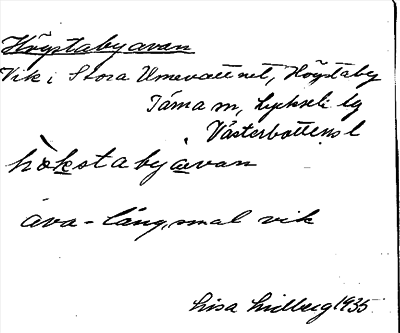 Högstabyavan
Vik i Stora Umevattnet, Högstaby
Tärna sn, Lycksele lg
Västerbottens l
hökstabyavan
ava - lång, smal vik
Lisa Lidberg 1935